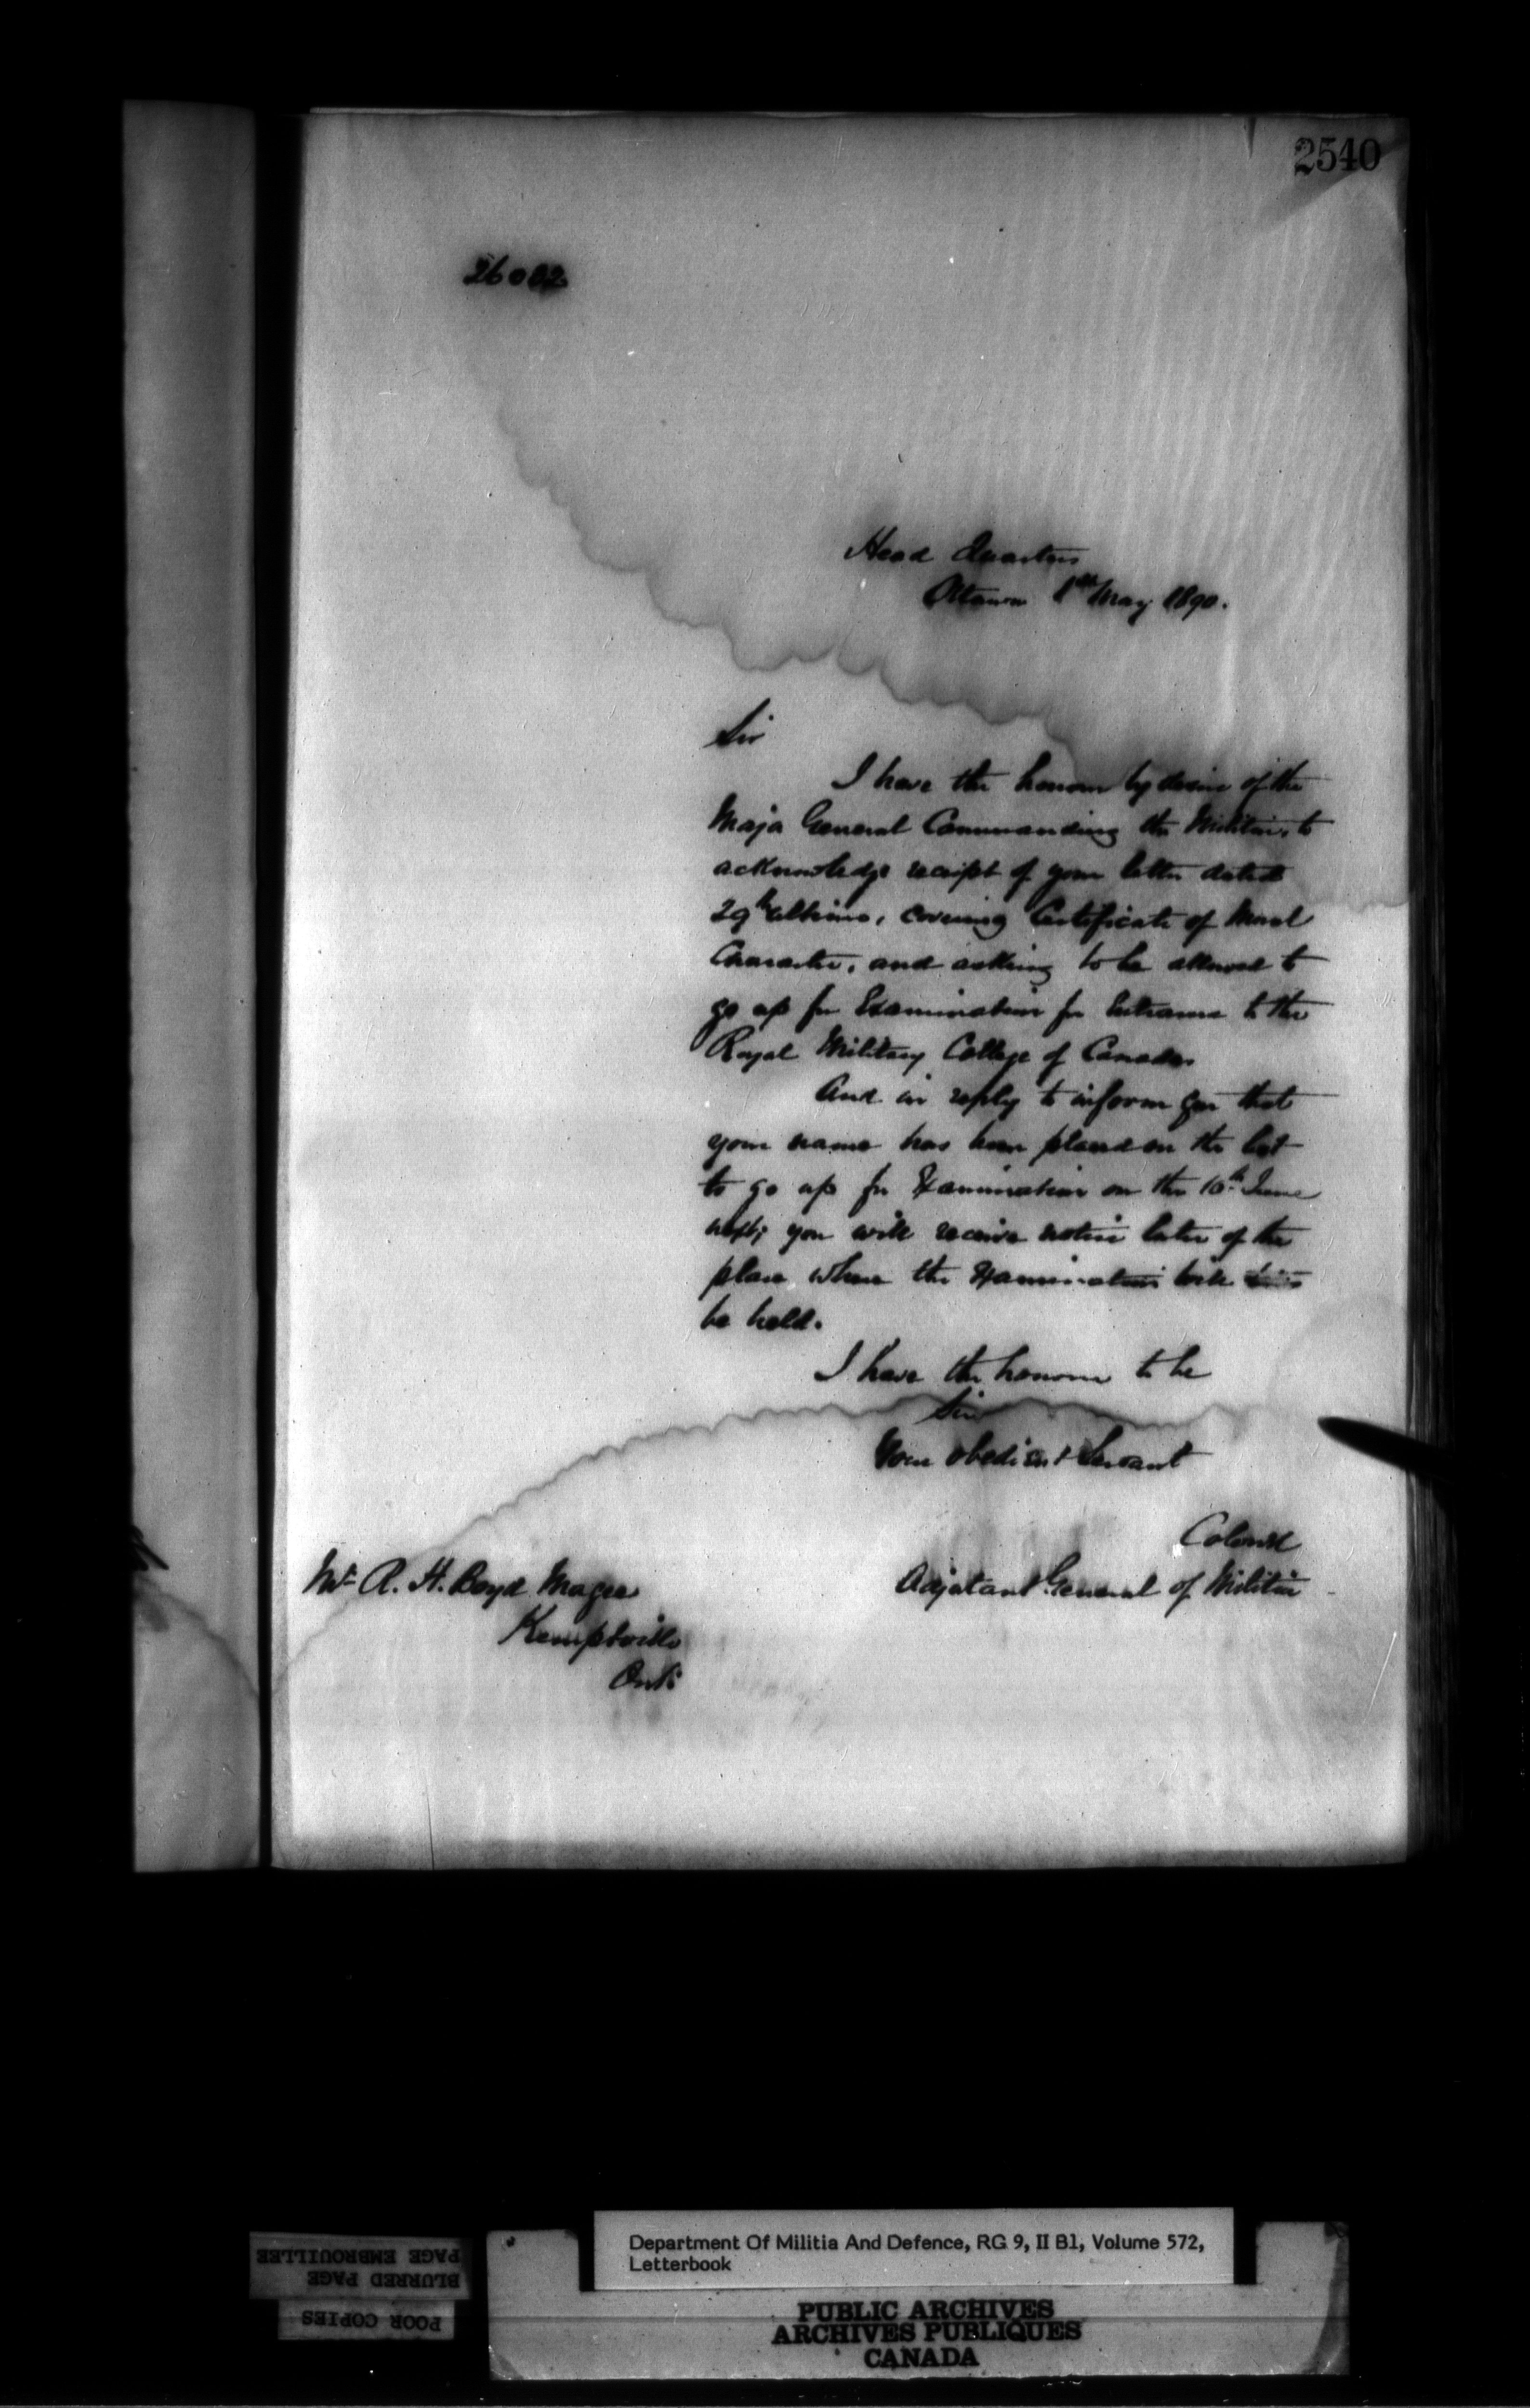 2540
26002
Head Quarters
Ottawa 1st May 1890.
Sir
I have the honour by desire of the
Major General Commanding the Militia, to
acknowledge receipt of your letter dated
29th ultimo, covering Certificate of Moral
Character, and asking to be allowed to
go up for Examination for Entrance to the
Royal Military College of Canada.
And in reply to inform you that
your name has been placed on the list
to go up for Examination on the 10th June
next; you will receive notice later of the
place where the Examination will
be held.
I have the honour to be
Sir
Your obedient Servant
Colonel
Adjutant General of Militia
Mr A. H. Boyd Magee
Kemptville
Ont:
Department Of Militia And Defence, RG 9, II B1, Volume 572,
Letterbook
PAGE EMBROUILLEE
BLURRED PAGE
POOR COPIES
PUBLIC ARCHIVES
ARCHIVES PUBLIQUES
CANADA